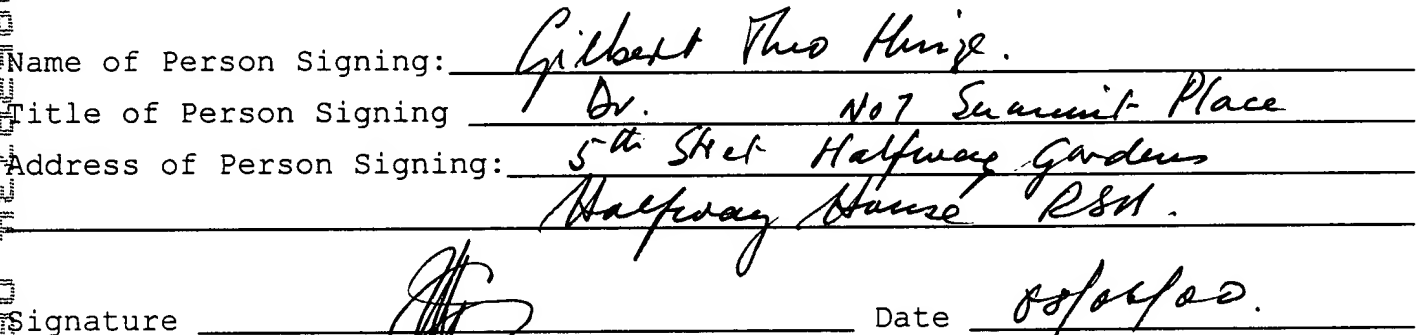 Name of Person Signing: Gilbert Theo Hinze.
Title of Person Signing Dr. No 7 Summit Place
Address of Person Signing: 5th Street Halfway Gardens
Halfway House RSA.
Signature Date 08/06/00.